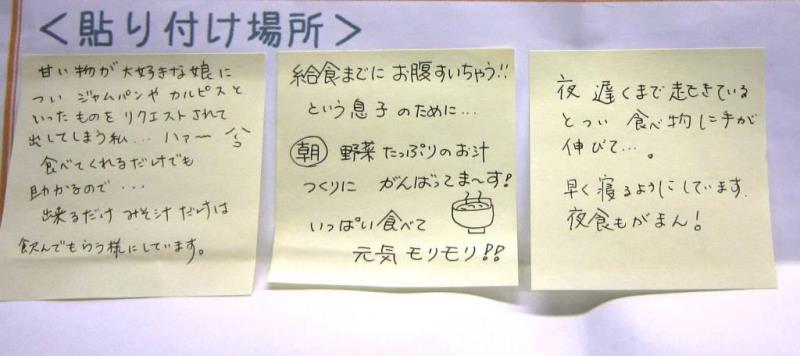 ＜貼り付け場所＞
甘い物が大好きな娘に
つい ジャムパンや カルピスと
いったものを リクエストされて
出してしまう私… ハァ〜
食べてくれるだけでも
助かるので・・・
出来るだけ みそ汁だけは
飲んでもらう様にしています。
給食までに お腹すいちゃう!!
という息子のために…
朝 野菜たっぷりのお汁
つくりに がんばってま〜す!
いっぱい食べて
元気モリモリ!!
夜 遅くまで起きている
とつい 食べ物に手が
伸びて…。
早く寝るようにしています.
夜食もがまん!